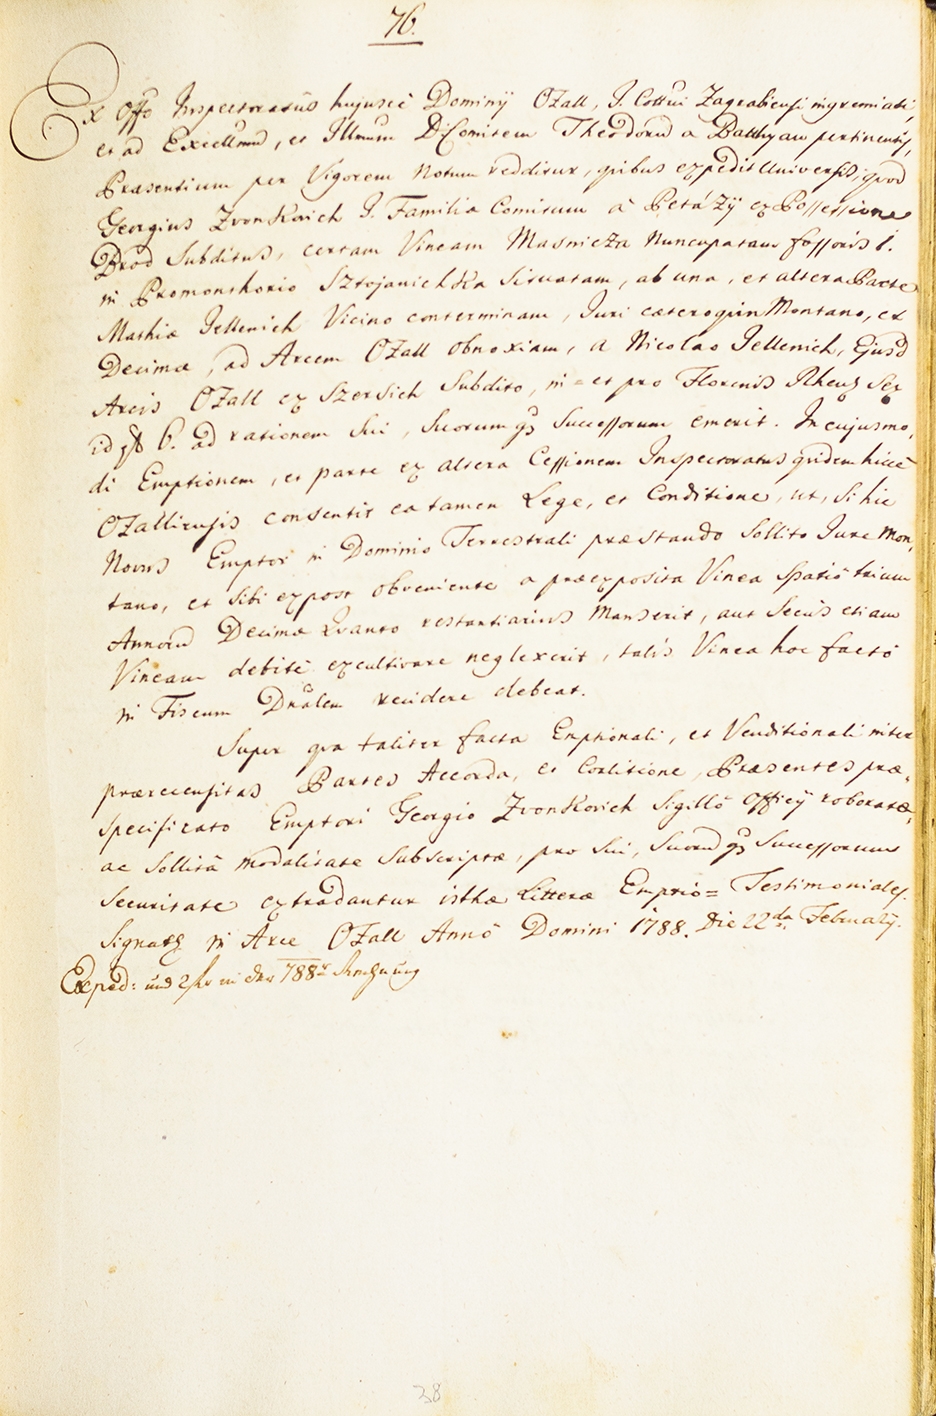 76.
Ex Offo Inspectoratûs hujusce Dominÿ Ozall, I. Cottui Zagrabiensi ingremiati,
et ad Excellmum, et Illmum D. Comitem Theodorum a Batthyan pertinentis,
Praesentium per Vigorem Notum redditur, quibus expedit Universis, quod
Georgius Zvonkovich I. Familiae Comitum à Petázÿ ex Possessione
Brod Subditus, certam Vineam Masnicza Nuncupatam fossoris 1.
in Promonthorio Sztojanichka Situatam, ab una, et altera Parte
Mathiae Jellenich Vicino conterminam, Juri caeteroquin Montano, et
Decimae, ad Arcem Ozall obnoxiam, a Nicolao Jellenich, Ejusd
Arcis Ozall ex Szersich Subdito, in = et pro Florenis Rhen. Sex
id est 6. ad rationem Sui, Suorumq3 Successorum emerit. In cujusmo,
di Emptionem, et parte ex altera Cessionem Inspectoratus quidem hicce
Ozalliensis consentit ea tamen Lege, et Conditione, ut, Si hic
Novus Emptor in Dominio Terrestrali praestando Sollito Jure Mon,
tano, et Sibi expost obveniente a praeexposita Vinea Spatio trium
Annorum Decimae Quanto restantiarius Manserit, aut Secus etiam
Vineam debitè excultivare neglexerit, talis Vinea hoc facto
in Fiscum Dnalem recidere debeat.
Super qua taliter facta Emptionali, et Venditionali inter
praerecensitas Partes Accorda, et Coalitione, Praesentes prae,
specificato Emptori Georgio Zvonkovich Sigillô Officÿ roboratae,
ac Sollitâ Modalitate Subscriptae, pro Sui, Suorumq3 Successorum
Securitate extradantur isthae Litterae Emptio = Testimoniales.
Signatum in Arce Ozall Annô Domini 1788. Die 22da Februarÿ.
Exped: und 2 in der 788r Rechnung
38